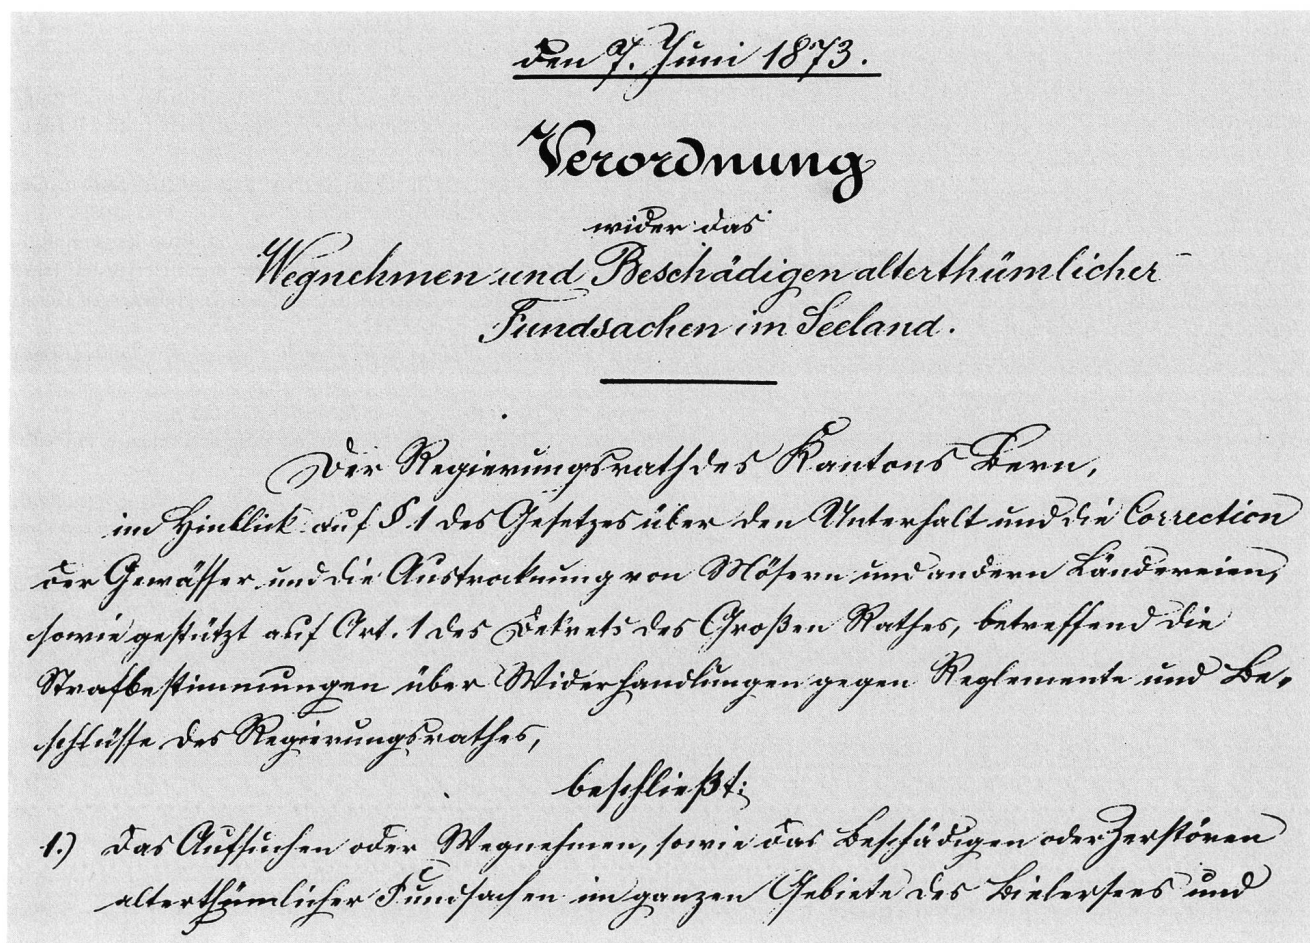 den 7. Juni 1873.
Verordnung
wider das
Wegnehmen und Beschädigen alterthümlicher
Fundsachen im Seeland.
Der Regierungsrath des Kantons Bern,
im Hinblick auf § 1 des Gesetzes über den Unterhalt und die Correction
der Gewässer und die Austrocknung von Mösern und andern Ländereien,
sowie gestützt auf Art. 1 des Dekrets des Großen Rathes, betreffend die
Strafbestimmungen über Widerhandlungen gegen Reglemente und Be-
schlüsse des Regierungsrathes,
beschließt:
1.) Das Aufsuchen oder Wegnehmen, sowie das Beschädigen oder Zerstören
alterthümlicher Fundsachen im ganzen Gebiete des Bielersees und